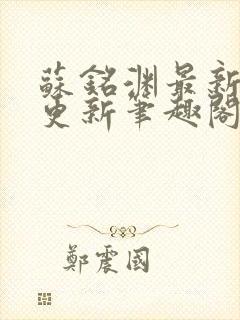 蘇銘淵最新
更新筆趣閣
鄭震國